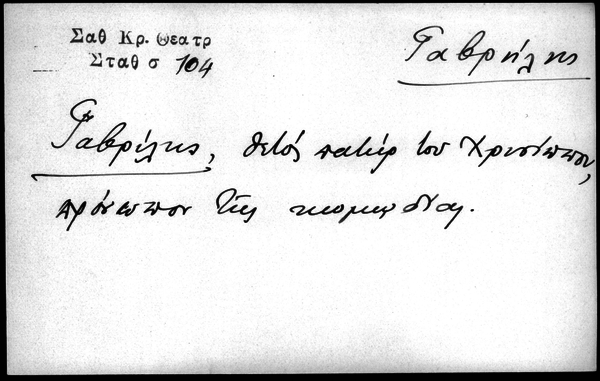 Σαθ Κρ. Θεατρ
Σταθ σ 104
Γαβρήλης
Γαβρίλης, θετός πατήρ του Χρυσίππου,
πρόσωπον της κωμωδίας.